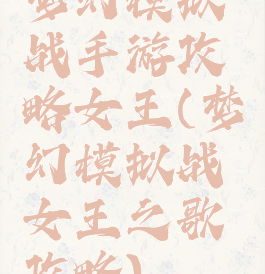 梦幻模拟
战手游攻
略女王(梦
幻模拟战
女王之歌
攻略)